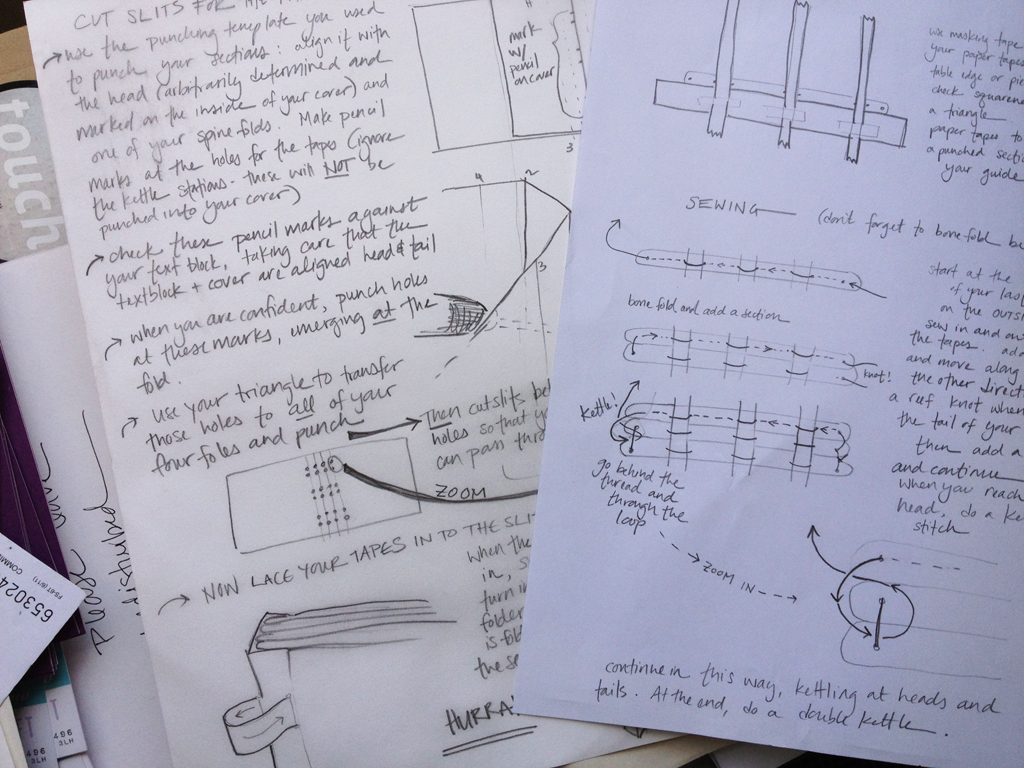 CUT SLITS FOR THE
use the punching template you used
to punch your sections: align it with
the head (arbitrarily determined and
marked on the inside of your cover) and
one of your spine folds. Make pencil
marks at the holes for the tapes (ignore
the kettle stations - these will NOT be
punched into your cover)
check these pencil marks against
your text block, taking care that the
textblock + cover are aligned head & tail
when you are confident, punch holes
at these marks, emerging at the
fold.
use your triangle to transfer
those holes to all of your
four foles and punch
mark
w/
pencil
on cover
3
4
2
3
Then cut slits
holes so that
can pass
ZOOM
NOW LACE YOUR TAPES IN TO THE
when the
in,
turn in
folder
the
HURRA
use masking tape
your paper tapes
table edge or
check
a triangle
paper tapes to
a punched
your guide
SEWING
(don't forget to bone-fold
start at the
of your last
on the
sew in and
the tapes.
and move along
the other
a reef knot when
the tail of your
then add a
and continue
when you reach
head, do a
stitch
bone fold and add a section
knot!
kettle!
go behind the
thread and
through the
loop
ZOOM IN
continue in this way, kettling at heads and
tails. At the end, do a double kettle.
touch
Please
undisturbed
653024
COMM
496
3LH
496
3LH